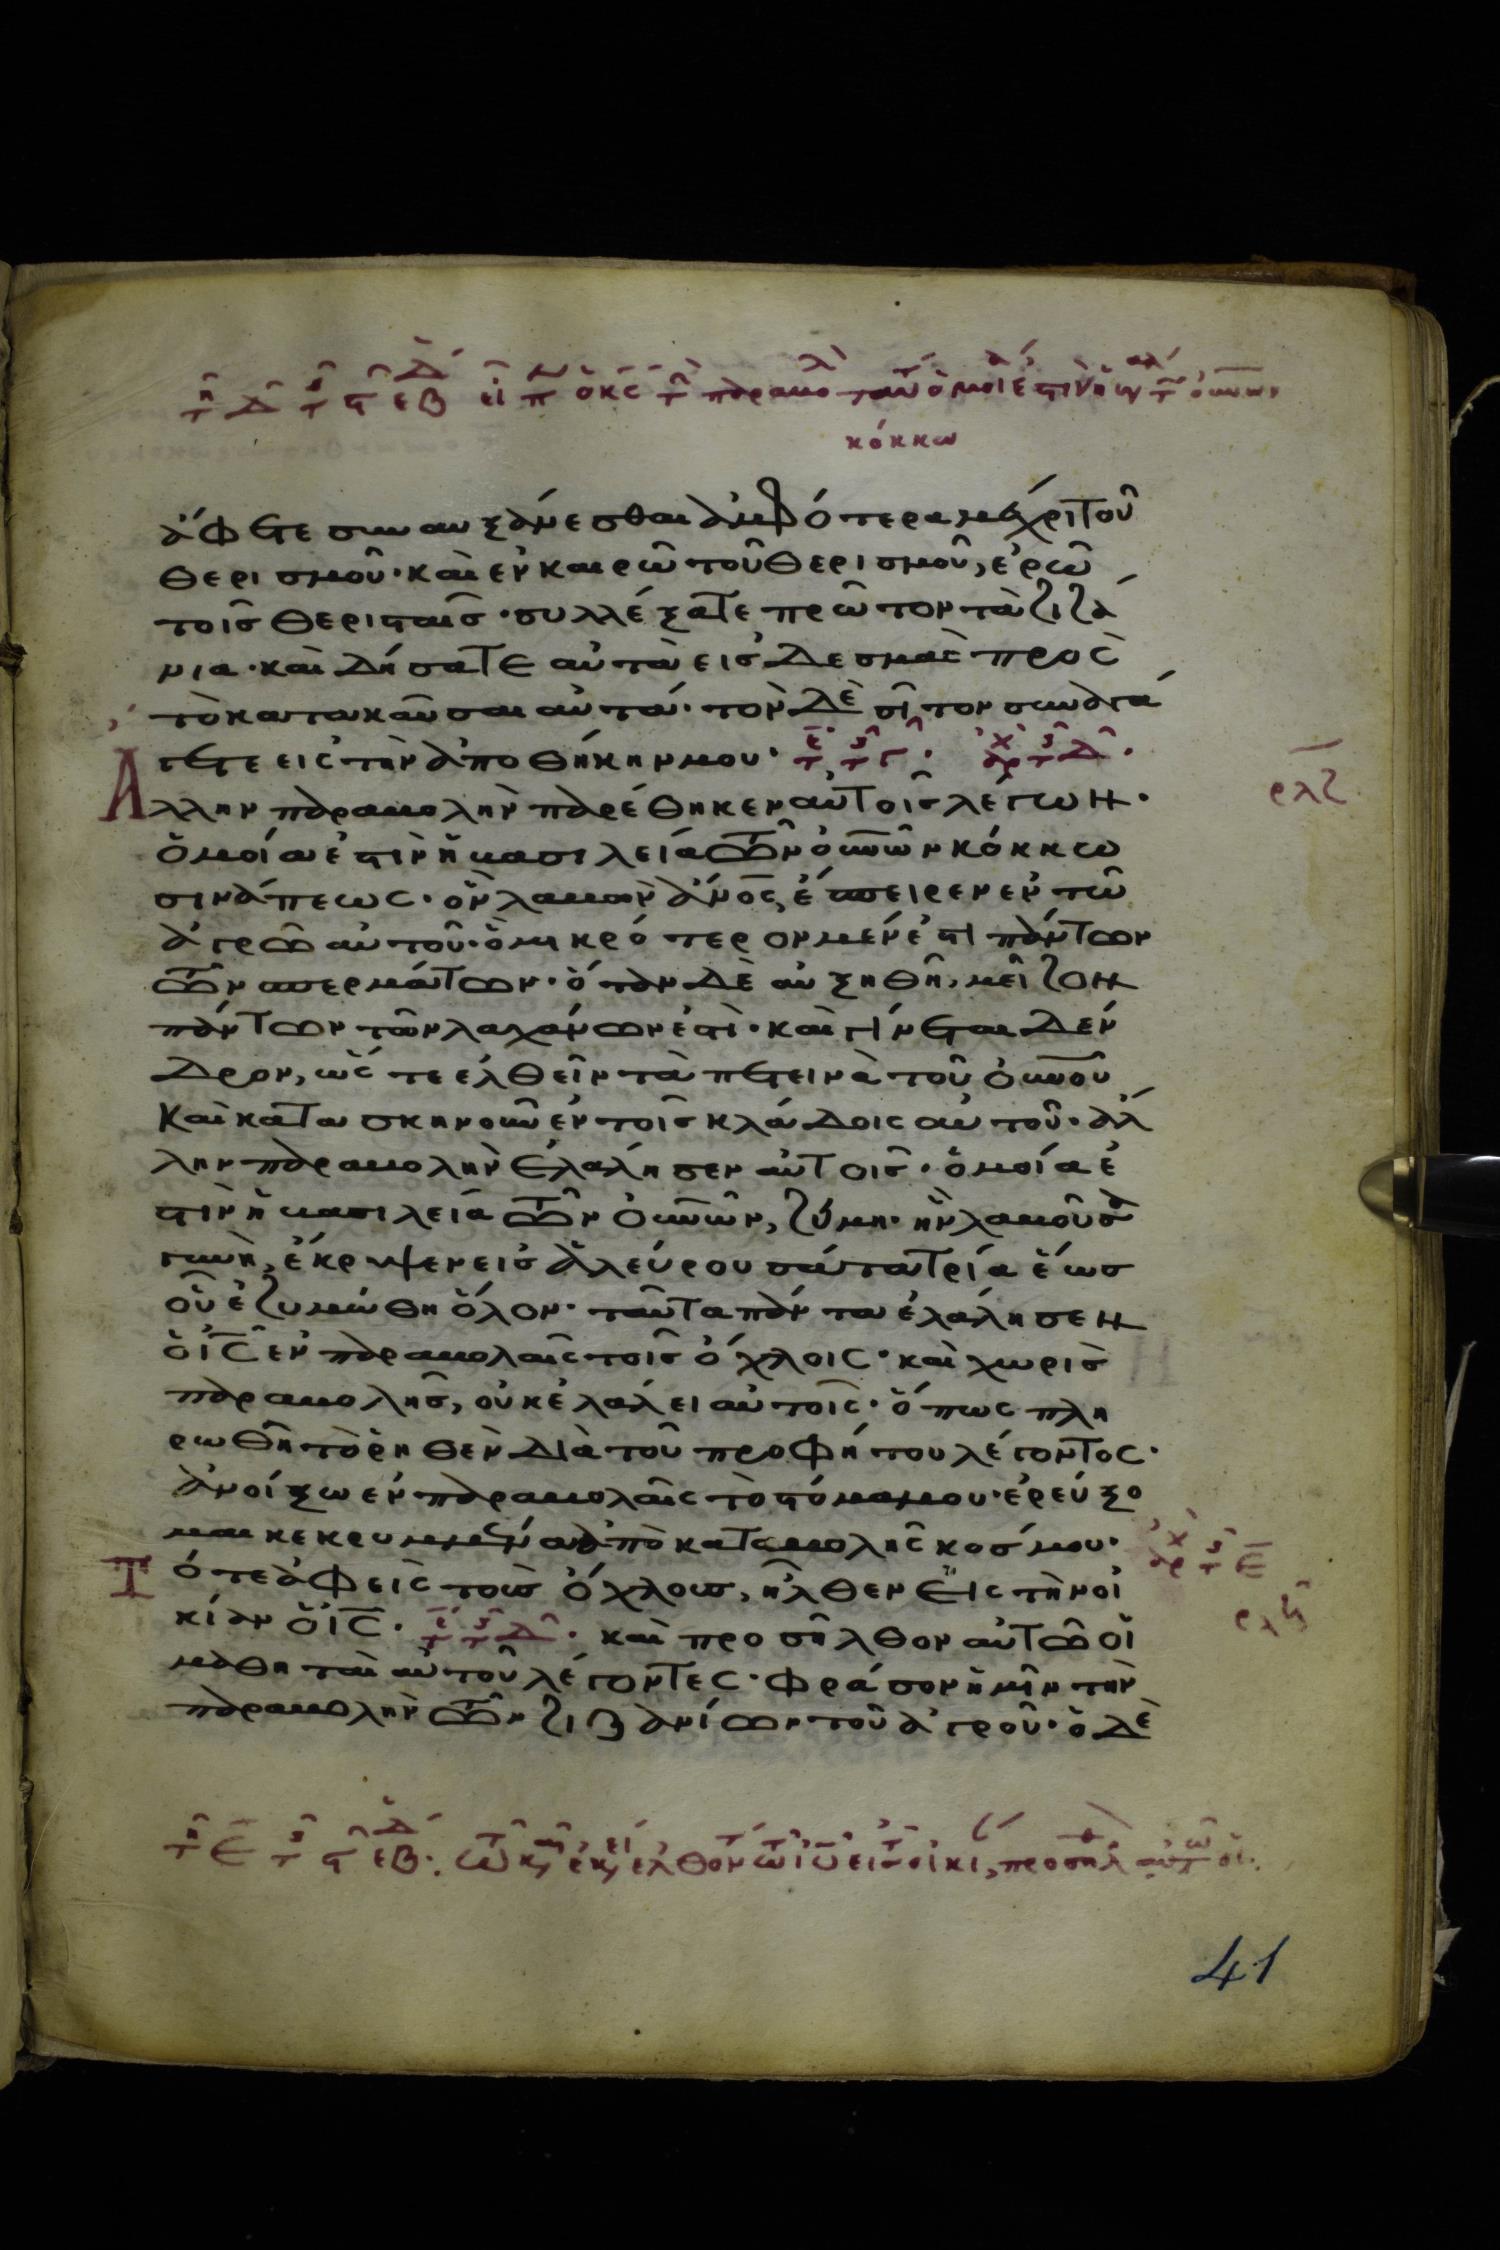 κόκκω
ἄφετε συναυξάνεσθαι ἀμφότερα μέχρι τοῦ
θερισμοῦ· καὶ ἐν καιρῶ τοῦ θερισμοῦ, ἐρῶ
τοῖς θερισταῖς· συλλέξατε πρῶτον τὰ ζιζά
νια· καὶ δήσατε αὐτὰ εἰς δεσμὰς πρὸς
τὸ κατακαῦσαι αὐτά· τὸν δὲ σῖτον συνάγά
γετε εἰς τὴν ἀποθήκην μου·
Ἄλλην παραβολὴν παρέθηκεν αὐτοῖς λέγων·
ρλζ
ὁμοία ἐστὶν ἡ βασιλεία τῶν οὐνῶν κόκκω
σινάπεως· ὃν λαβὼν ἄνος, ἔσπειρεν ἐν τῶ
ἀγρῶ αὐτοῦ· ὃ μικρότερον μέν ἐστι πάντων
τῶν σπερμάτων· ὅταν δὲ αὐξηθῆ, μεῖζον
πάντων τῶν λαχάνων ἐστὶ· καὶ γίνεται δέν
δρον, ὥστε ἐλθεῖν τὰ πετεινὰ τοῦ οὐνοῦ
καὶ κατασκηνοῦν ἐν τοῖς κλάδοις αὐτοῦ· ἄλ
λην παραβολὴν ἐλάλησεν αὐτοῖς· ὁμοία ἐ
στὶν ἡ βασιλεία τῶν οὐνῶν, ζύμη· ἣν λαβοῦσα
γυνὴ, ἔκρυψεν εἰς ἀλεύρου σάτα τρία ἕως
οὗ ἐζυμώθη ὅλον· ταῦτα πάντα ἐλάλησεν
ὁ ις ἐν παραβολαῖς τοῖς ὄχλοις· καὶ χωρὶς
παραβολῆς, οὐκ ἐλάλει αὐτοῖς· ὅπως πλη
ρωθῆ τὸ ῥηθὲν διὰ τοῦ προφήτου λέγοντος·
ἀνοίξω ἐν παραβολαῖς τὸ στόμα μου· ἐρεύξο
μαι κεκρυμμένα ἀπὸ καταβολῆς κοσμου·
Τότε ἀφεὶς τοὺς ὄχλους, ἦλθεν εἰς τὴν οἰ
ρλη
κίαν ὁ ις· καὶ προσῆλθον αὐτῶ οἱ
μαθηταὶ αὐτοῦ λέγοντες· φράσον ἡμῖν τὴν
παραβολὴν τῶν ζιζανίων τοῦ ἀγροῦ· ὁ δὲ
41